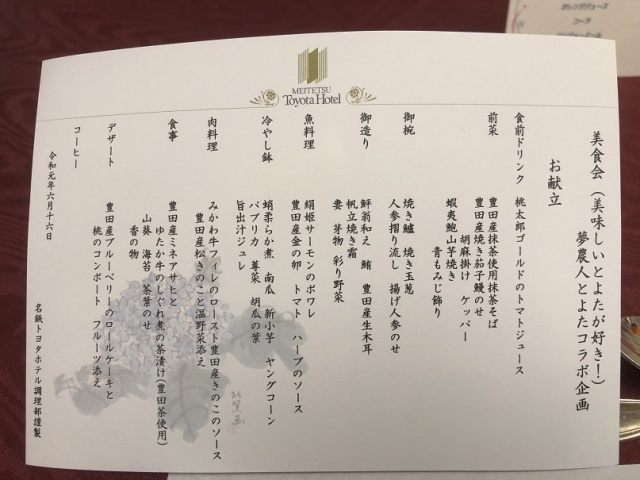 MEITETSU
Toyota Hotel
美食会（美味しいとよたが好き！）
夢農人とよたコラボ企画
お献立
食前ドリンク 桃太郎ゴールドのトマトジュース
前菜 豊田産抹茶使用抹茶そば
豊田産焼き茄子鰻のせ
胡麻掛け ケッパー
蝦夷鮑山芋焼き
青もみじ飾り
御椀 焼き鱧 焼き玉葱
人参摺り流し 揚げ人参のせ
御造り 鮃翁和え 鮪 豊田産生木耳
帆立焼き霜
妻 芽物 彩り野菜
魚料理 絹姫サーモンのポワレ
豊田産金の卵 トマト ハーブのソース
冷やし鉢 蛸柔らか煮 南瓜 新小芋 ヤングコーン
パプリカ 蓴菜 胡瓜の葉
旨出汁ジュレ
肉料理 みかわ牛フィレのロースト豊田産きのこのソース
豊田産松きのこと温野菜添え
食事 豊田産ミネアサヒと
ゆたか牛のしぐれ煮の茶漬け（豊田茶使用）
山葵 海苔 茶葉のせ
香の物
デザート 豊田産ブルーベリーのロールケーキと
桃のコンポート フルーツ添え
コーヒー
令和元年六月十六日
名鉄トヨタホテル調理部謹製
オレンジジュース
コーラ